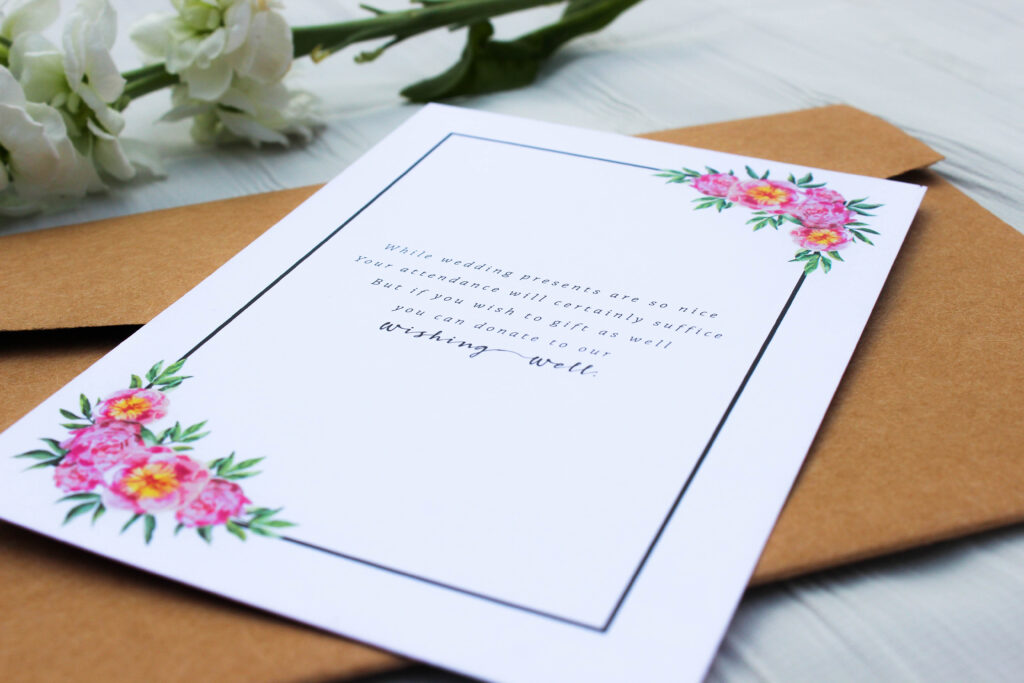 While wedding presents are so nice
Your attendance will certainly suffice
But if you wish to gift as well
you can donate to our
wishing well.